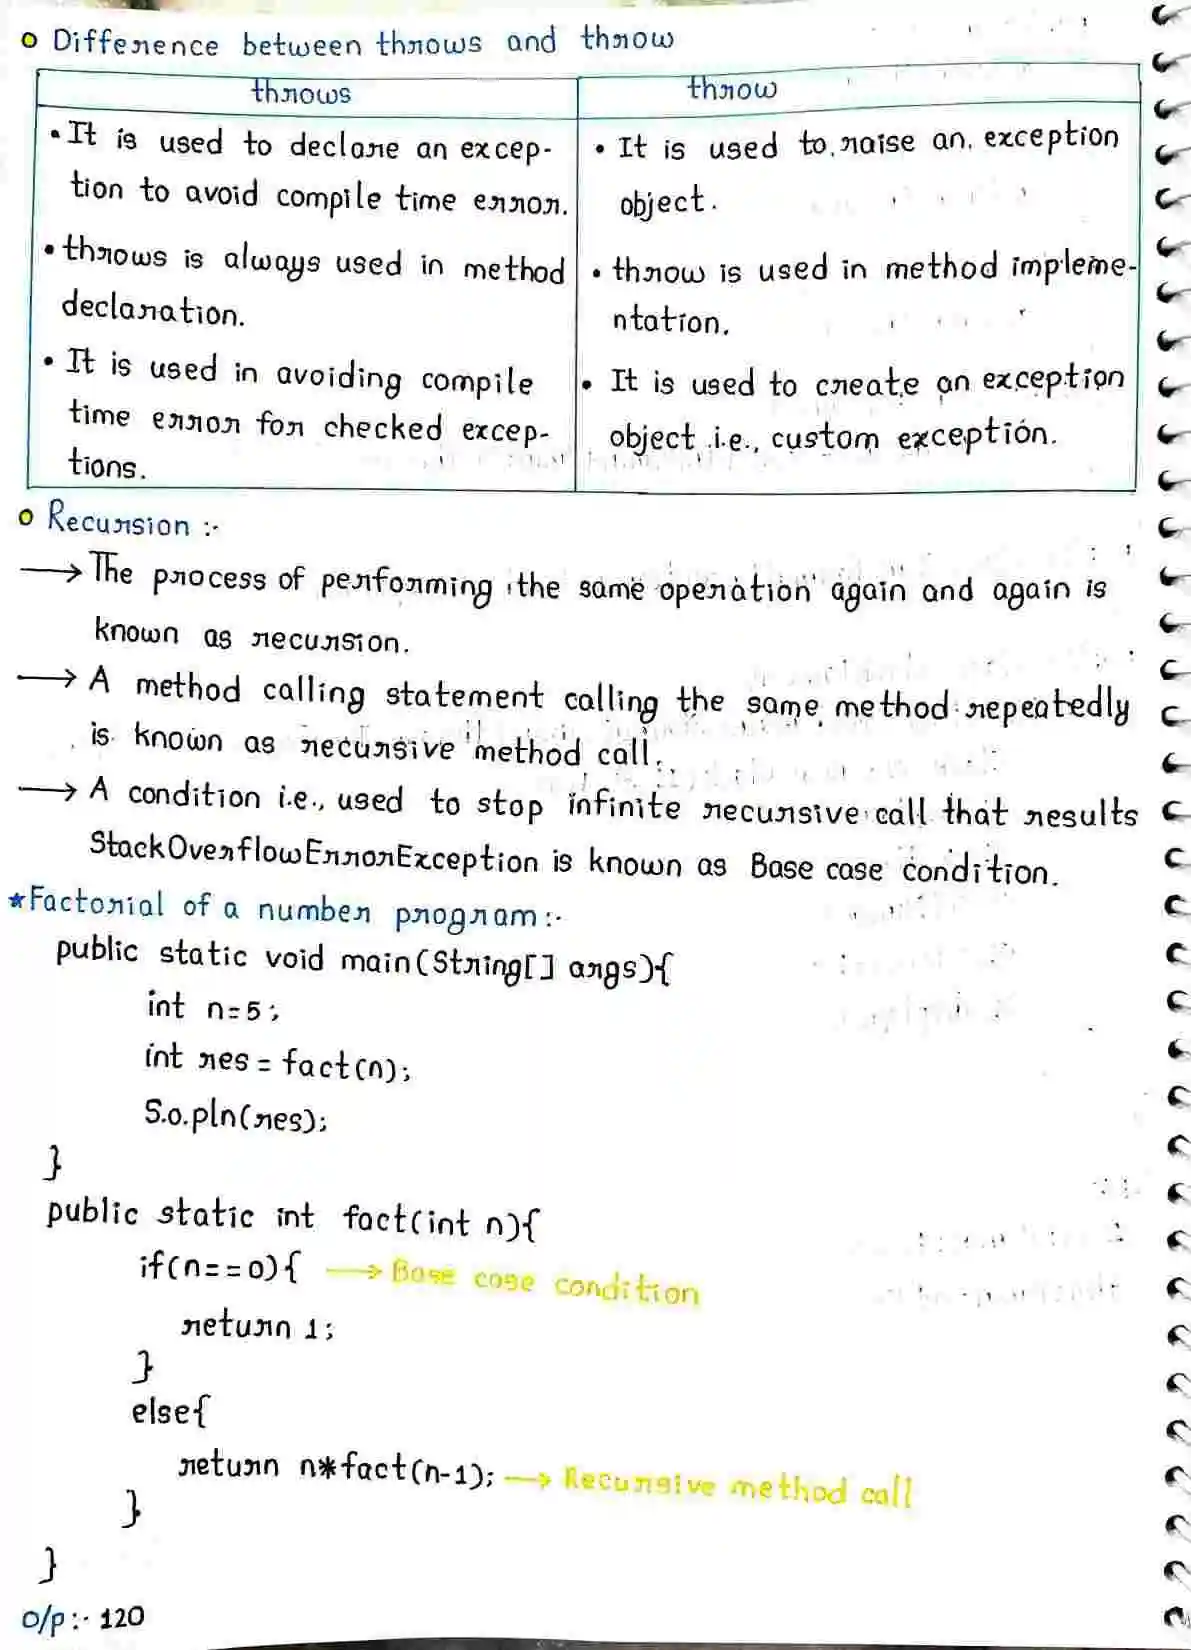 Difference between throws and throw
throws
throw
• It is used to declare an excep-
tion to avoid compile time error.
• throws is always used in method
declaration.
• It is used in avoiding compile
time error for checked excep-
tions.
• It is used to raise an exception
object.
• throw is used in method impleme-
ntation.
• It is used to create an exception
object i.e., custom exception.
Recursion :-
→ The process of performing the same operation again and again is
known as recursion.
→ A method calling statement calling the same method repeatedly
is known as recursive method call.
→ A condition i.e., used to stop infinite recursive call that results
StackOverflowErrorException is known as Base case condition.
*Factorial of a number program:-
public static void main(String[] args){
int n=5;
int res = fact(n);
S.o.pln(res);
}
public static int fact(int n){
if(n==0){ → Base case condition
return 1;
}
else{
return n*fact(n-1); → Recursive method call
}
}
O/p:- 120